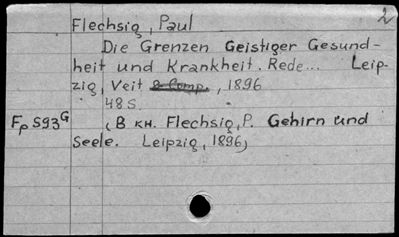 2
Flechsig, Paul
Die Grenzen Geistiger Gesund-
heit und Krankheit. Rede... Leip-
zig, Veit & Comp., 1896
48 S.
Fp S93 G (В кн. Flechsig, P. Gehirn und
Seele. Leipzig, 1896)